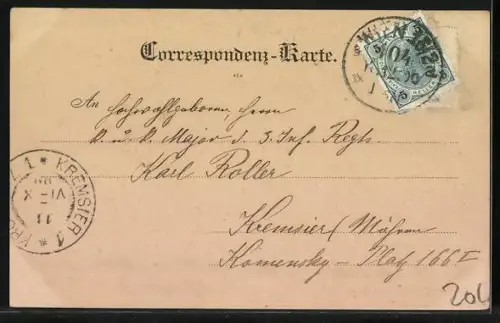 Correspondenz-Karte.
An Hochwohlgeboren, Herrn
k. u. k. Major d. 3. Inf. Regts
Karl Roller
Kremsier / Mähren
Komensky-Platz 166 I
WIEN
04
1 * KREMSIER
VI-X
11
206